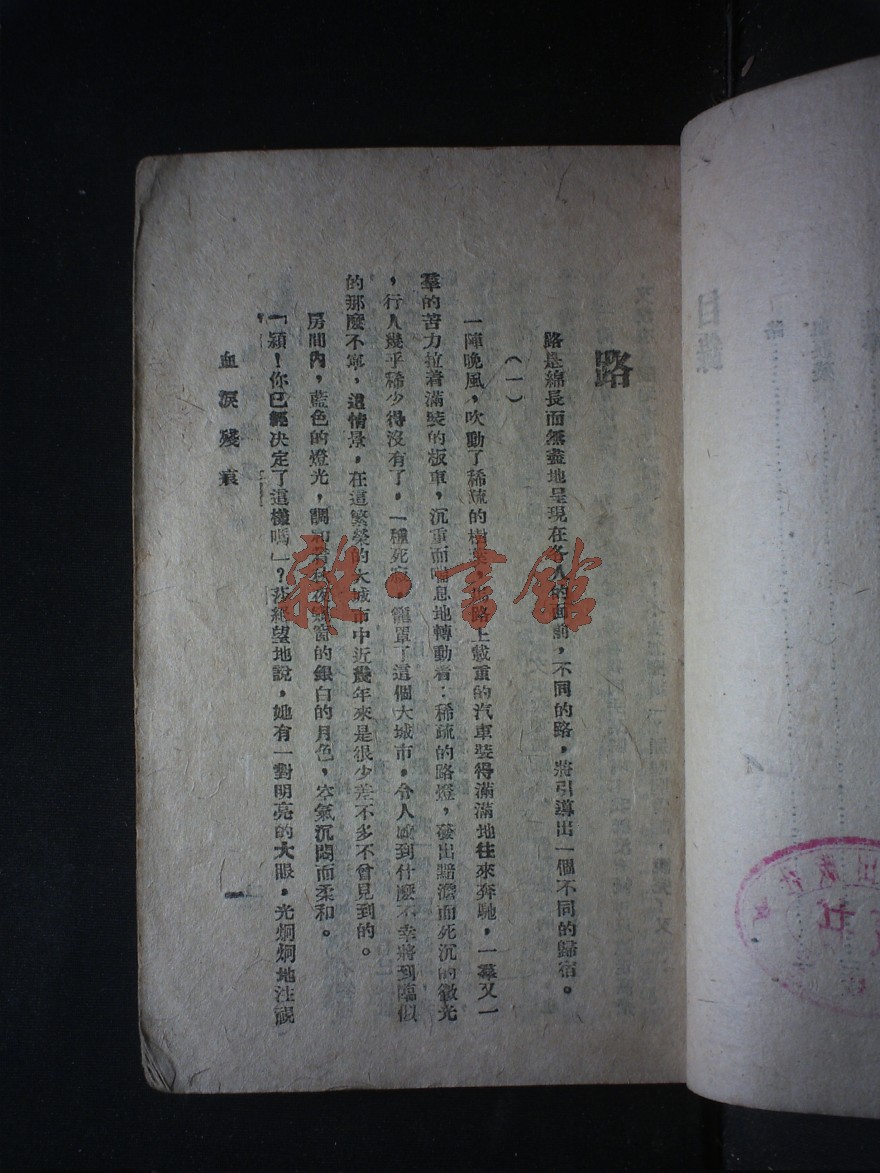 路
路是綿長而無盡地呈現在各人的面前，不同的路，將引導出一個不同的歸宿。
（一）
一陣晚風，吹動了稀疏的樹葉，馬路上載重的汽車裝得滿滿地往來奔馳，一羣又一
羣的苦力拉着滿裝的板車，沉重而喘息地轉動着；稀疏的路燈，發出黯澹而死沉的微光
，行人幾乎稀少得沒有了，一種死寂，籠罩了這個大城市，令人感到什麼不幸將到臨似
的那麼不寧，這情景，在這繁榮的大城市中近幾年來是很少差不多不曾見到的。
房間內，藍色的燈光，調和着秋夜窗的銀白的月色，空氣沉悶而柔和。
「穎！你已經决定了這樣嗎」？莎絕望地說，她有一對明亮的大眼，光炯炯地注視
血淚殘痕
一
目錄
路
雜·書館